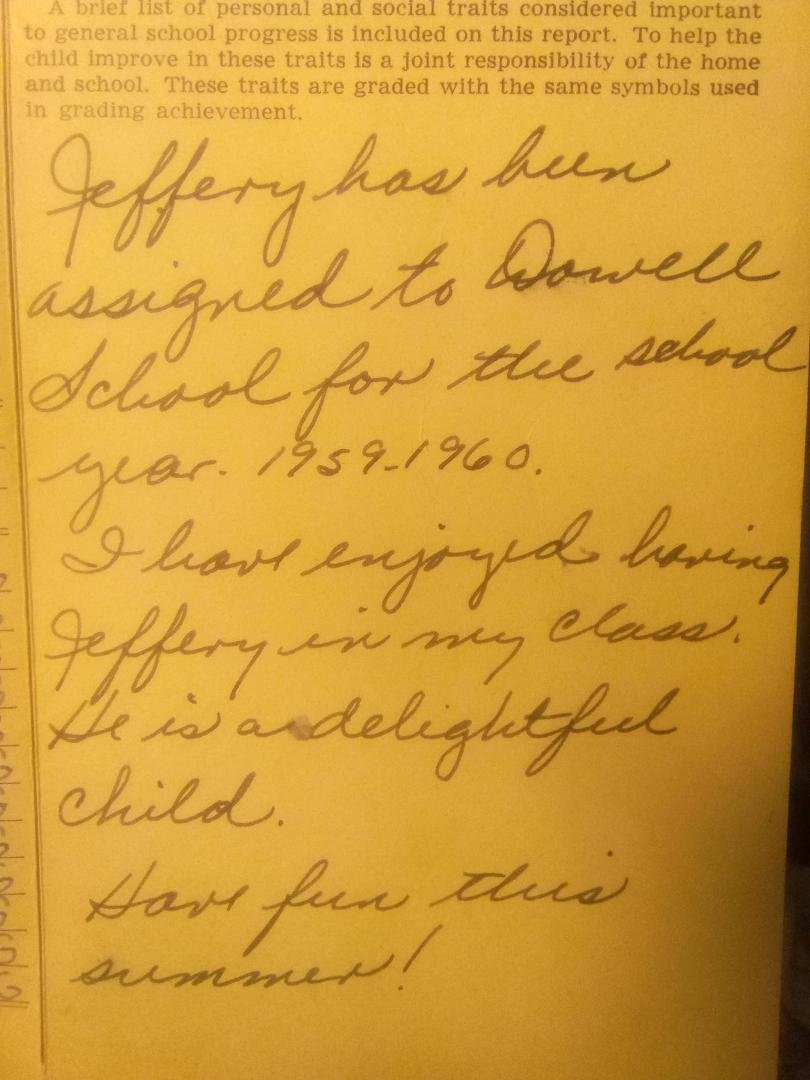 A brief list of personal and social traits considered important
to general school progress is included on this report. To help the
child improve in these traits is a joint responsibility of the home
and school. These traits are graded with the same symbols used
in grading achievement.
Jeffery has been
assigned to Dowell
School for the school
year. 1959-1960.
I have enjoyed having
Jeffery in my class.
He is a delightful
child.
Have fun this
summer!